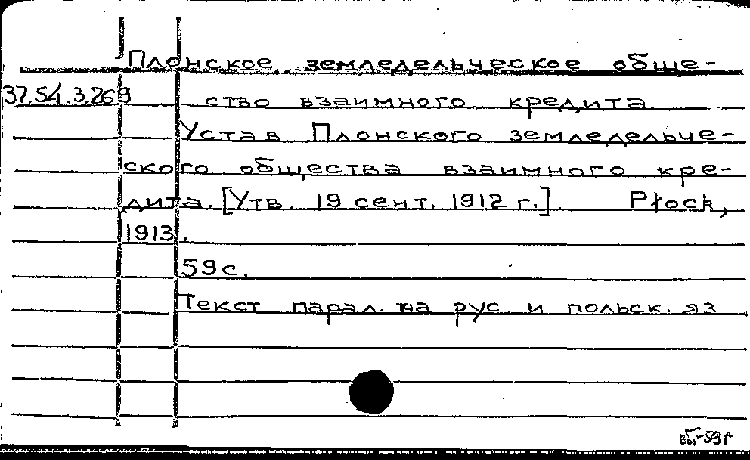 Плонское земледельческое обще-
37.54.3.269 ство взаимного кредита.
Устав Плонского земледельче-
ского общества взаимного кре-
дита. [Утв. 19 сент. 1912 г.]. Płock,
1913.
59 с.
Текст парал. на рус. и польск. яз